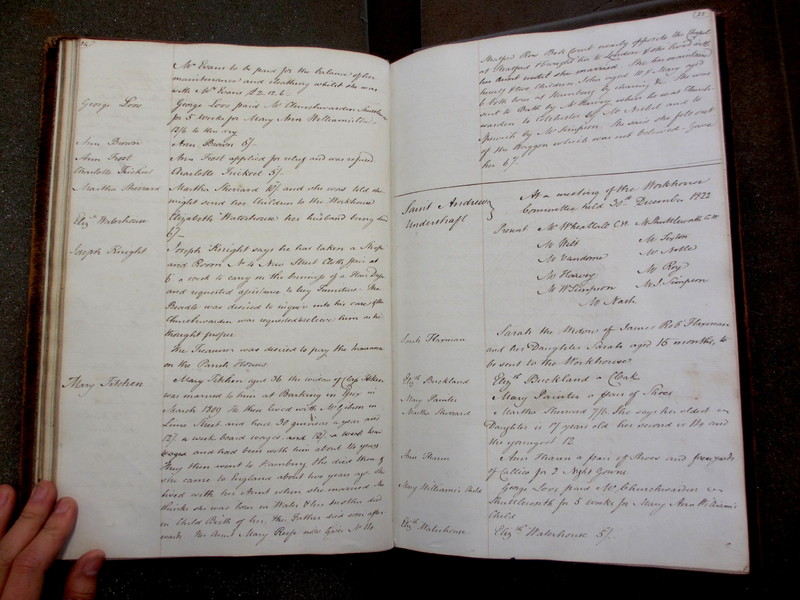 24
Mr Evans to be paid for the balance of her
maintenance and cloathing whilst she was
with Mr Evans £2.12.6
George Loos
George Loos paid Mr Churchwarden
for 5 weeks for Mary Ann Williamson
12/6 to this day
Ann Brown
Ann Brown 5/-
Ann Frost
Ann Frost applied for relief and was refused
Charlotte Trickel
Charlotte Trickel 5/-
Martha Sherrard
Martha Sherrard 10/ and she was told she
might send her Children to the Workhouse
Elizth Waterhouse
Elizabeth Waterhouse her husband being
6/-
Joseph Knight
Joseph Knight says he has taken a Shop
and Room at 4 New Street Cloth fair at
6/ a week to carry on the business of a
and requested assistance to buy Furniture The
Beadle was desired to inquire into his case & the
Churchwarden was requested to relieve him as he
thought proper
The Treasurer was desired to pay the Insurance
on the Parish Houses
Mary Titchen
Mary Titchen aged 36 the widow of
was married to him at Barking in Essex in
March 1809 He then lived with Mr Gibson in
Lime Street and had 30 guineas a year and
12/- a week board wages and 12/- a week
wages and had been with him about years
They then went to Hamburg He died there &
she came to England about two years ago She
lived with her Aunt when she married She
thinks she was born in Wales & her Mother died
in Child Birth of her, the Father died soon after
wards Her Aunt Mary now lives No
25
Row Back Court nearly opposite the Chapel
at Stratford & brought her to London & she lived with
her Aunt until she married She has maintained
herself & two Children John aged 10 & Mary aged
6 both born at Hamburg by She was
sent to Bath by Mr Harvey when he was Church
warden to Colchester by Mr and to
Ipswich by Mr Simpson She said she fell out
of the Waggon which was not believed Gave
her 6/-
Saint Andrew
Undershaft
At a meeting of the Workhouse
Committee held 30th December 1822
Present Mr Wheattall CW Mr Shuttleworth CW
Mr Wilt Mr Sexton
Mr Vandome Mr Noble
Mr Harvey Mr Roy
Mr W Simpson Mr J Simpson
Mr Nash
Sarah Harman
Sarah the Widow of James Robt Harman
and her Daughter Sarah aged 15 months, to
be sent to the Workhouse
Elizth Buckland
Elizth Buckland a Cloak
Mary Painter
Mary Painter a pair of Shoes
Martha Sherrard
Martha Sherrard 7/6. She says her oldest
Daughter is 17 years old her second is 14 and
the youngest 12
Ann Thann
Ann Thann a pair of Shoes and yards
of Callico for 2 Night Gowns
Mary Williams's Child
George Loos paid Mr Churchwarden
Shuttleworth for 5 weeks for Mary Ann Williams's
Child
Elizth Waterhouse
Elizth Waterhouse 5/-